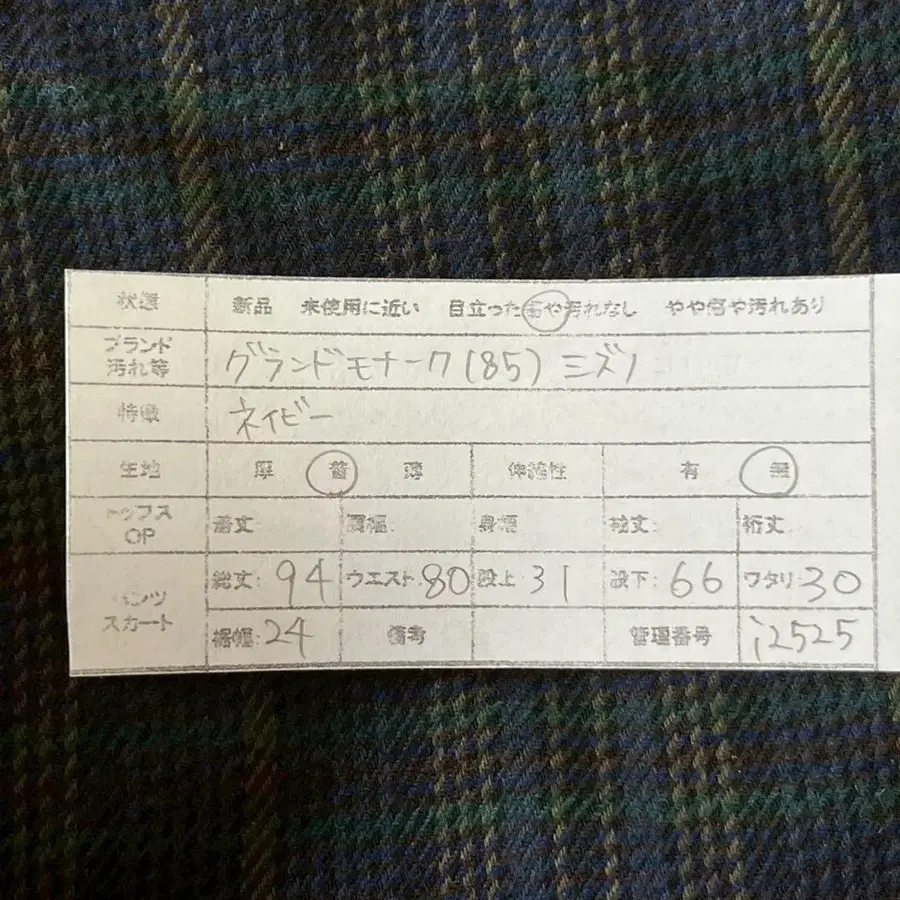 状態 新品 未使用に近い 目立った傷や汚れなし やや傷や汚れあり
ブランド
汚れ等 グランドモナーク(85) ミズノ
特徴 ネイビー
生地 厚 普 薄 伸縮性 有 無
トップス
OP 着丈: 肩幅: 身幅: 袖丈: 裄丈:
パンツ
スカート 総丈: 94 ウエスト: 80 股上: 31 股下: 66 ワタリ: 30
裾幅: 24 備考 管理番号 i2525